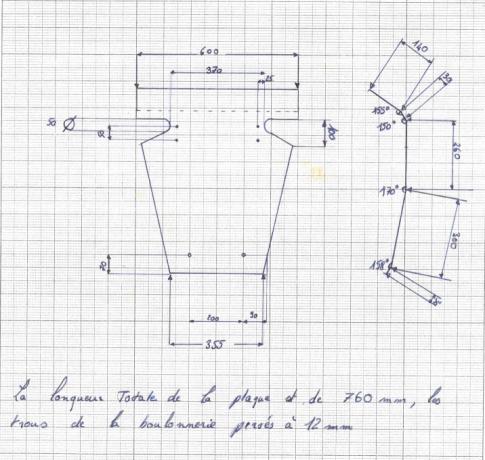 600
140
370
25
30
50 Ø
155°
150°
100
260
170°
300
70
158°
200
90
355
La longueur Totale de la plaque et de 760 mm, les
trous de la boulonnerie persés à 12 mm